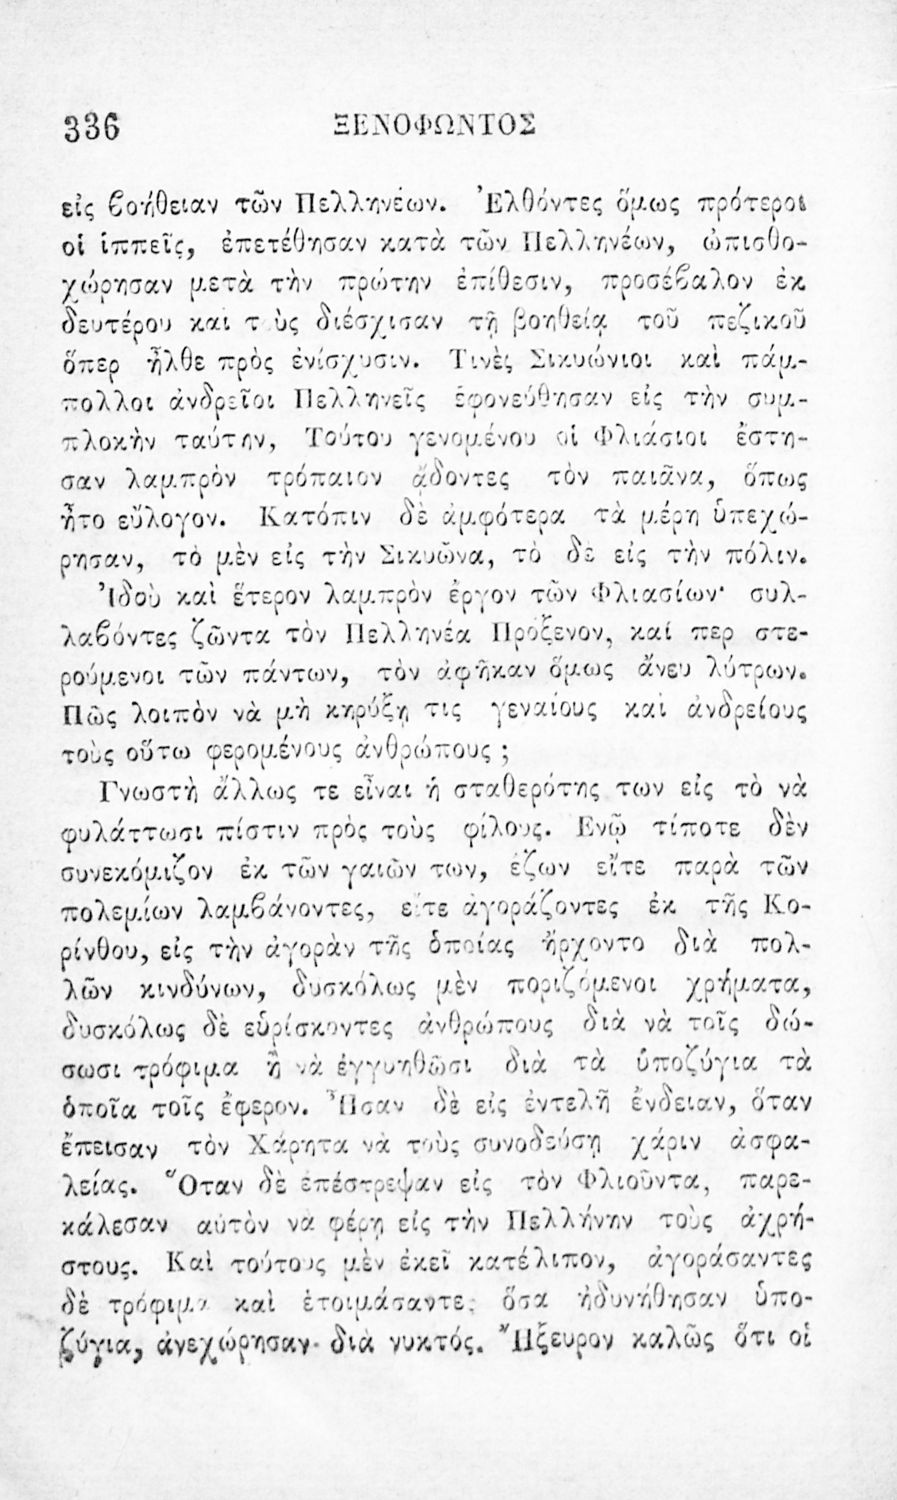 336 ΞΕΝΟΦΩΝΤΟΣ
εἰς βοήθειαν τῶν Πελληνέων. Ἐλθόντες ὅμως πρότεροι
οἱ ἱππεῖς, ἐπετέθησαν κατὰ τῶν Πελληνέων, ὠπισθο-
χώρησαν μετὰ τὴν πρώτην ἐπίθεσιν, προσέβαλον ἐκ
δευτέρου καὶ τοὺς διέσχισαν τῇ βοηθείᾳ τοῦ πεζικοῦ
ὅπερ ἦλθε πρὸς ἐνίσχυσιν. Τινὲς Σικυώνιοι καὶ πάμ-
πολλοι ἀνδρεῖοι Πελληνεῖς ἐφονεύθησαν εἰς τὴν συμ-
πλοκὴν ταύτην, Τούτου γενομένου οἱ Φλιάσιοι ἔστη-
σαν λαμπρὸν τρόπαιον ᾄδοντες τὸν παιᾶνα, ὅπως
ἦτο εὔλογον. Κατόπιν δὲ ἀμφότερα τὰ μέρη ὑπεχώ-
ρησαν, τὸ μὲν εἰς τὴν Σικυῶνα, τὸ δὲ εἰς τὴν πόλιν.
Ἰδοὺ καὶ ἕτερον λαμπρὸν ἔργον τῶν Φλιασίων· συλ-
λαβόντες ζῶντα τὸν Πελληνέα Πρόξενον, καί περ στε-
ρούμενοι τῶν πάντων, τὸν ἀφῆκαν ὅμως ἄνευ λύτρων.
Πῶς λοιπὸν νὰ μὴ κηρύξῃ τις γεναίους καὶ ἀνδρείους
τοὺς οὕτω φερομένους ἀνθρώπους ;
Γνωστὴ ἄλλως τε εἶναι ἡ σταθερότης των εἰς τὸ νὰ
φυλάττωσι πίστιν πρὸς τοὺς φίλους. Ενῷ τίποτε δὲν
συνεκόμιζον ἐκ τῶν γαιῶν των, ἔζων εἴτε παρὰ τῶν
πολεμίων λαμβάνοντες, εἴτε ἀγοράζοντες ἐκ τῆς Κο-
ρίνθου, εἰς τὴν ἀγορὰν τῆς ὁποίας ἤρχοντο διὰ πολ-
λῶν κινδύνων, δυσκόλως μὲν ποριζόμενοι χρήματα,
δυσκόλως δὲ εὑρίσκοντες ἀνθρώπους διὰ νὰ τοῖς δώ-
σωσι τρόφιμα ἢ νὰ ἐγγυηθῶσι διὰ τὰ ὑποζύγια τὰ
ὁποῖα τοῖς ἔφερον. Ἦσαν δὲ εἰς ἐντελῆ ἔνδειαν, ὅταν
ἔπεισαν τὸν Χάρητα νὰ τοὺς συνοδεύσῃ χάριν ἀσφα-
λείας. Ὅταν δὲ ἐπέστρεψαν εἰς τὸν Φλιοῦντα, παρε-
κάλεσαν αὐτὸν νὰ φέρῃ εἰς τὴν Πελλήνην τοὺς ἀχρή-
στους. Καὶ τούτους μὲν ἐκεῖ κατέλιπον, ἀγοράσαντες
δὲ τρόφιμα καὶ ἑτοιμάσαντες ὅσα ἠδυνήθησαν ὑπο-
ζύγια, ἀνεχώρησαν διὰ νυκτός. Ἤξευρον καλῶς ὅτι οἱ